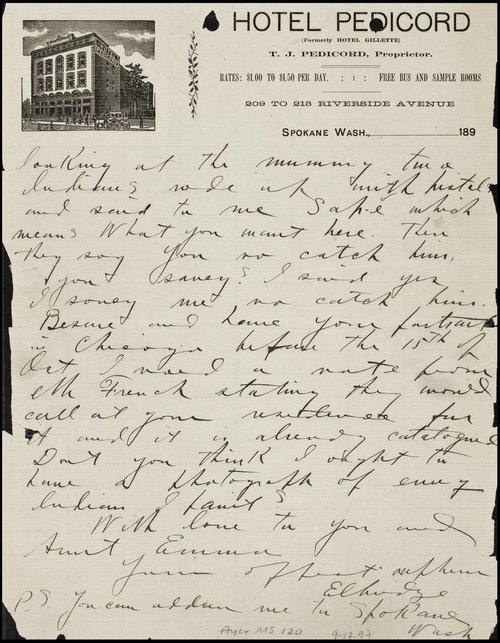 HOTEL PEDICORD
(Formerly HOTEL GILLETTE)
T. J. PEDICORD, Proprietor.
RATES: $1.00 TO $1.50 PER DAY. : : : FREE BUS AND SAMPLE ROOMS
209 TO 213 RIVERSIDE AVENUE
SPOKANE WASH., 189
Looking at the mummy two
Indians rode up with pistols
and said to me Sap-e which
means What you want here. Then
they say you no catch him,
you savey? I said yes
I savey me no catch him.
Besure and have your portrait
in Chicago before the 15th of
Oct I rec'd a note from
Mr French stating they would
call at your residence for
it and it is already catalogued
Don't you think I ought to
have a photograph of every
Indian I paint?
With love to you and
Aunt Emma
Your affect nephew
Elbridge
P.S. You can address me to Spokane
Wash
Ayer MS 120
9-17-97